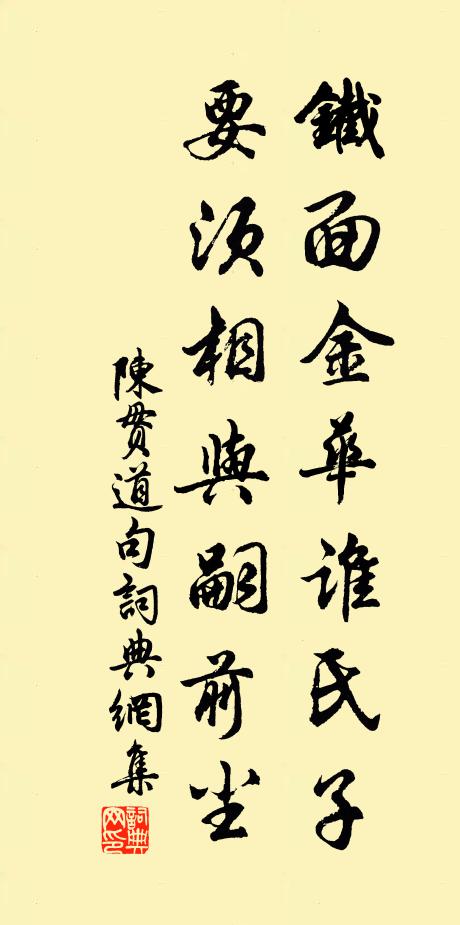 鐵面金華誰氏子
要須相與嗣前尘
陳贯道句詞典網集
詞典网印